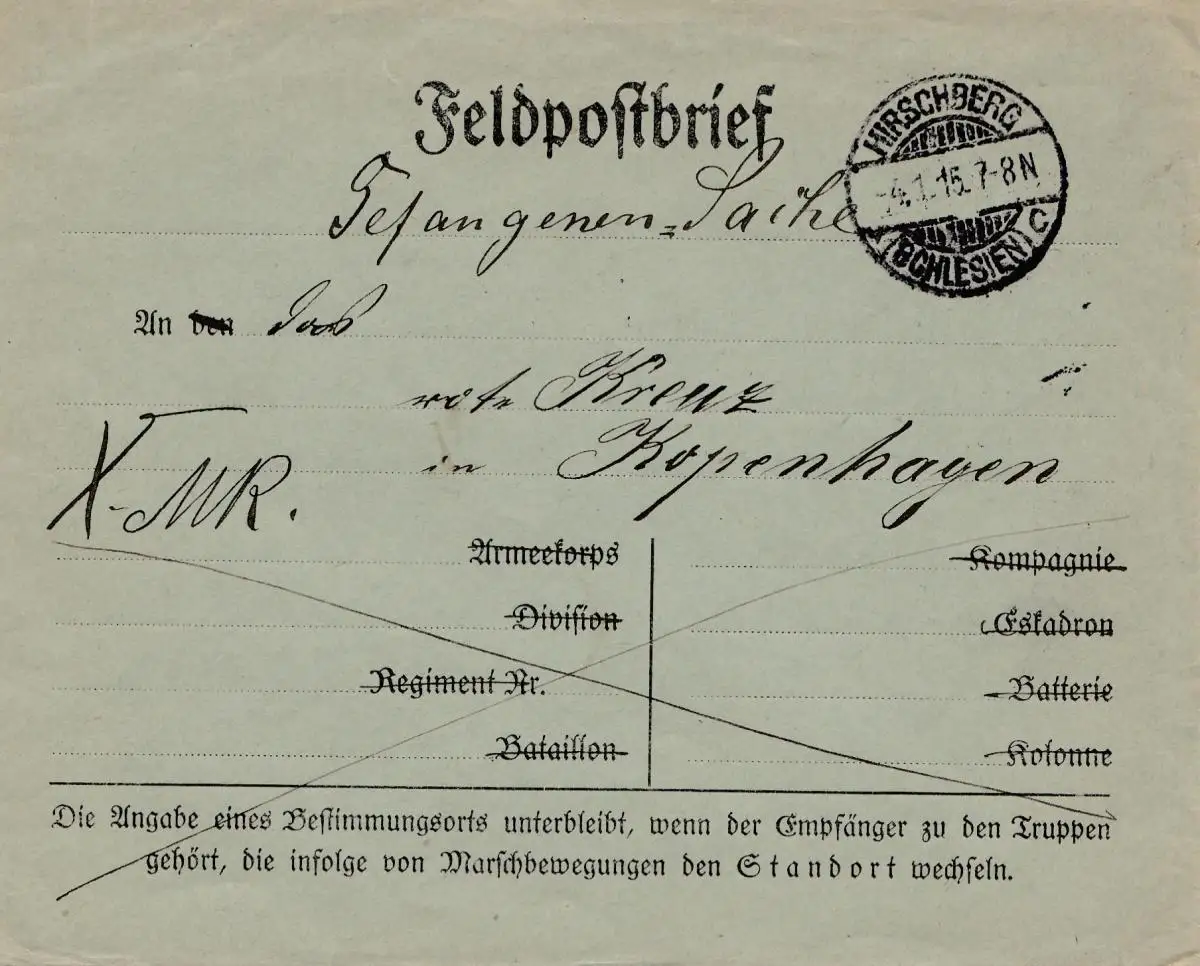 Feldpostbrief
HIRSCHBERG
-4.1.15.7-8N
(SCHLESIEN) C
Gefangenen=Sache
An den das
rote Kreuz
in Kopenhagen
X-MR.
Armeekorps
Division
Regiment Nr.
Bataillon
Kompagnie
Eskadron
Batterie
Kolonne
Die Angabe eines Bestimmungsorts unterbleibt, wenn der Empfänger zu den Truppen
gehört, die infolge von Marschbewegungen den Standort wechseln.